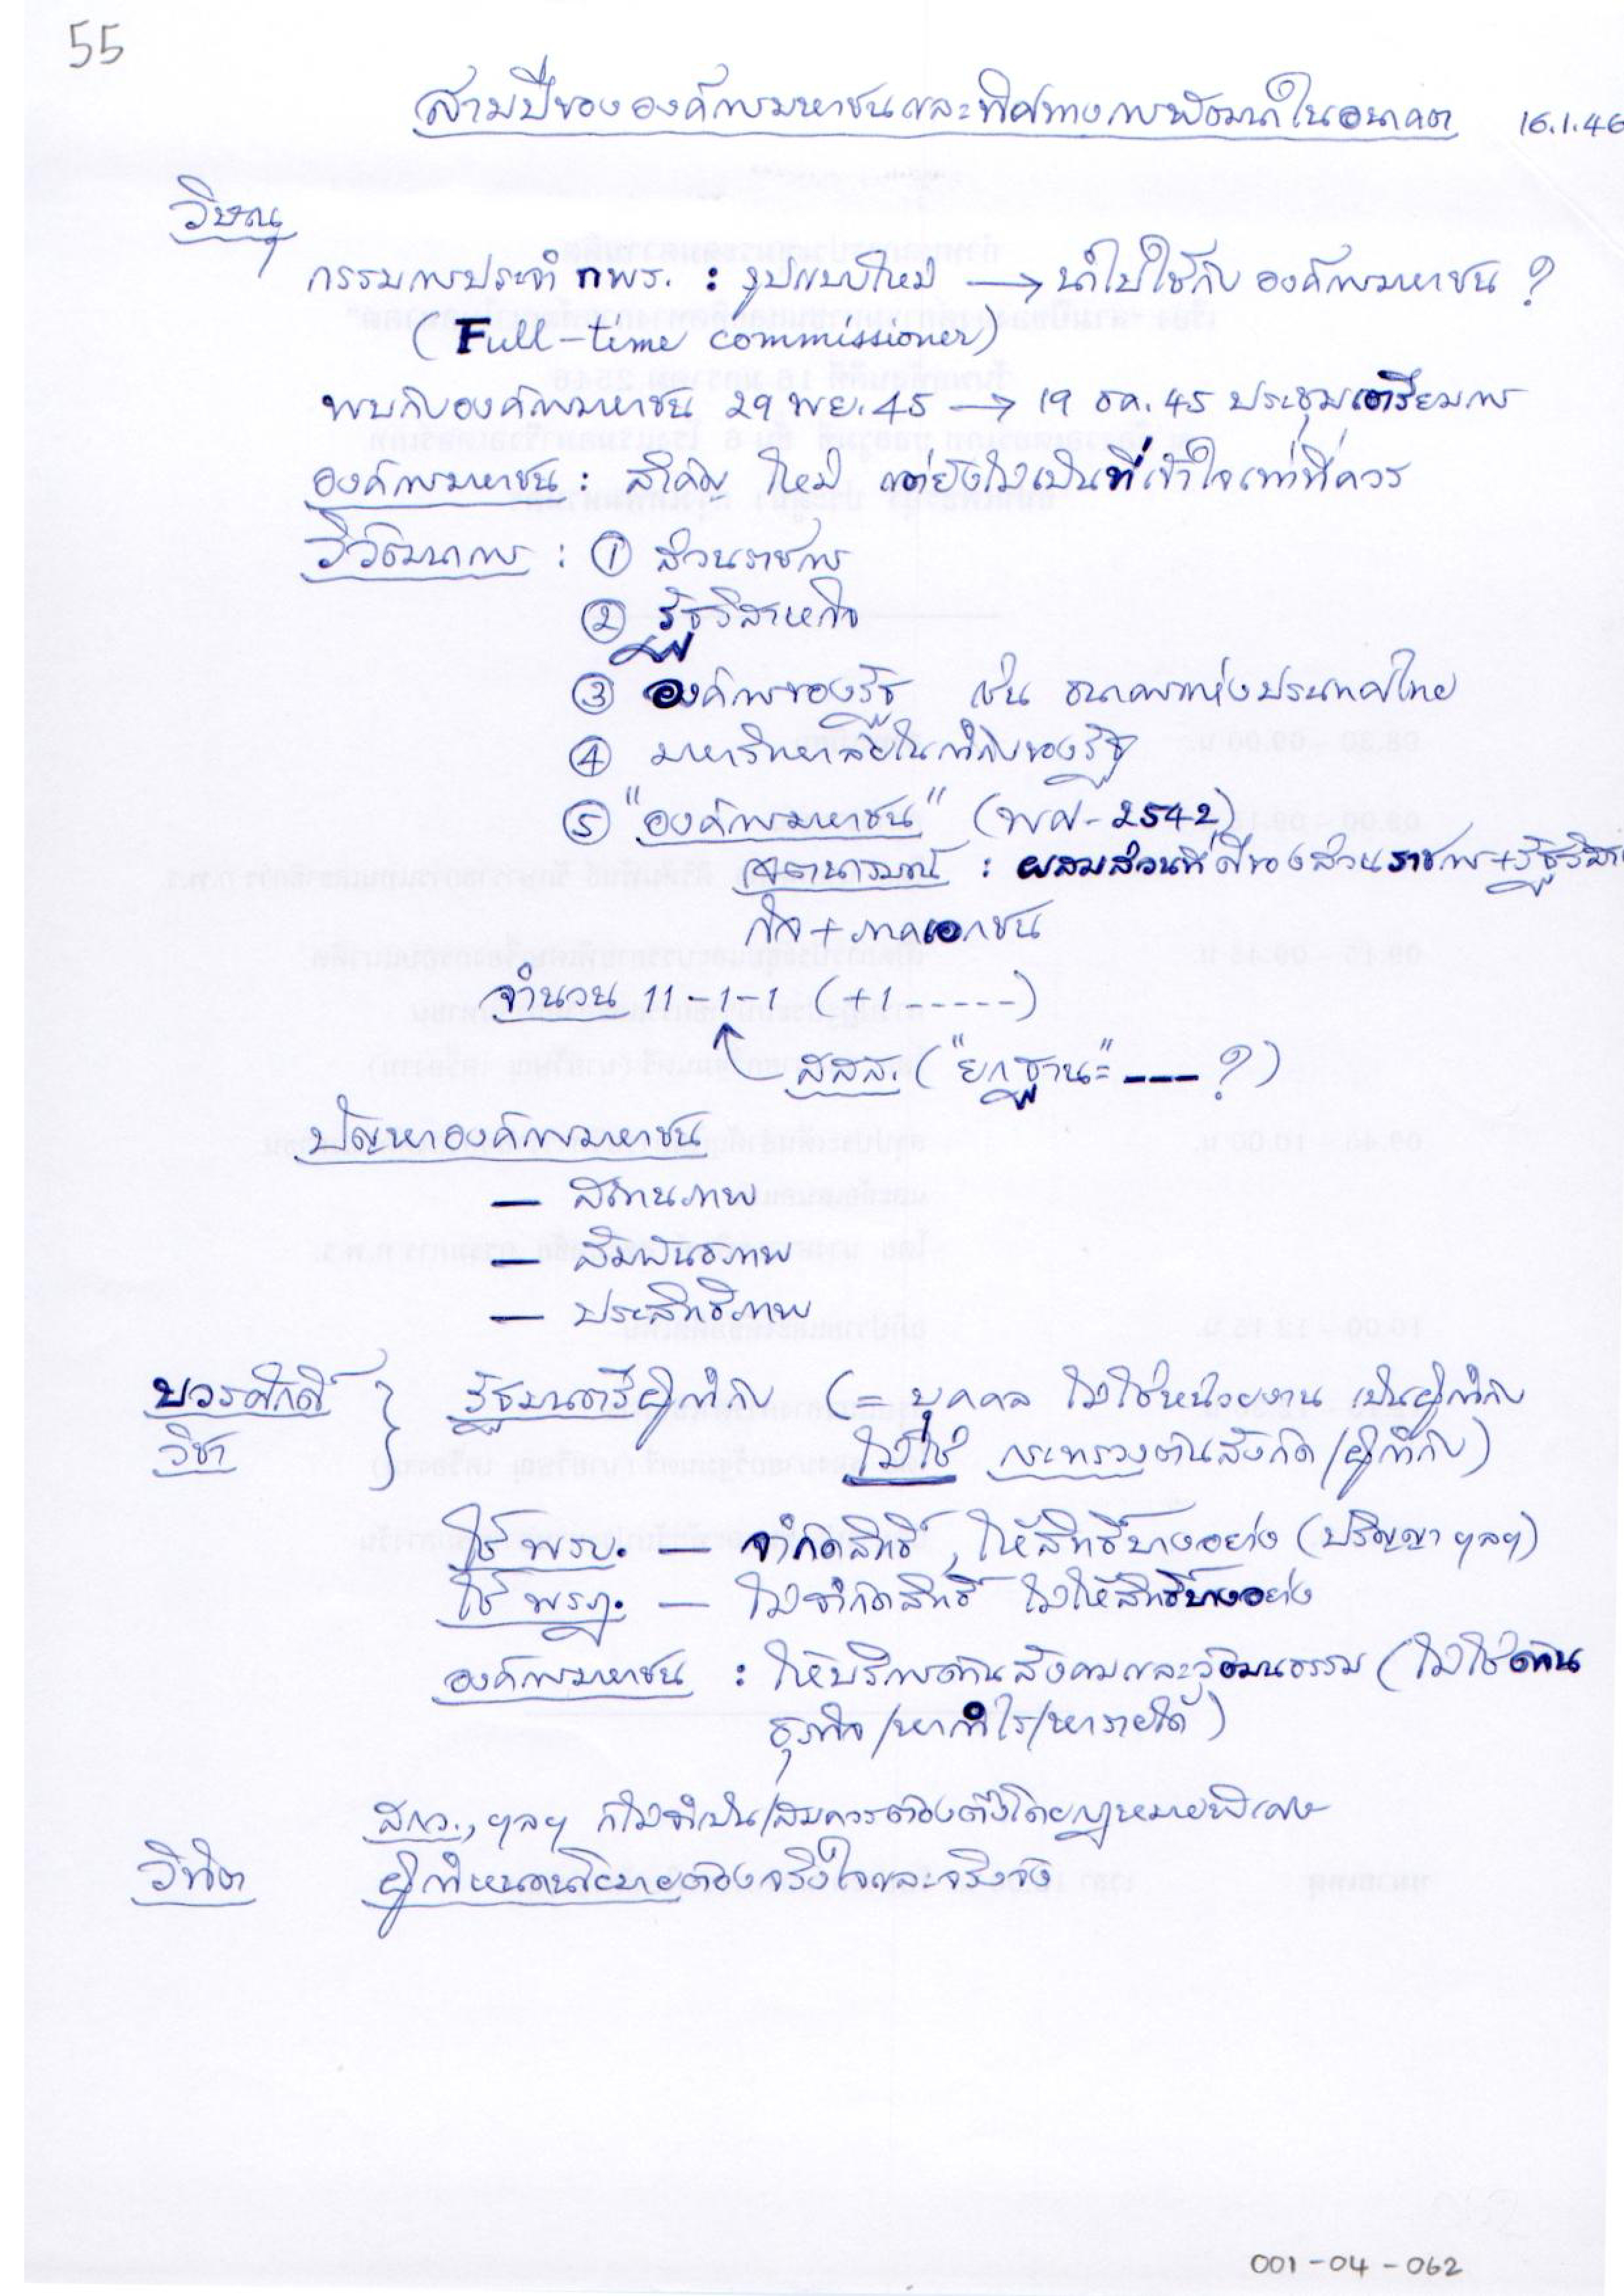 55
สามปีขององค์การมหาชนและทิศทางการพัฒนาในอนาคต 16.1.46
วิษณุ
กรรมการประจำ กพร. : รูปแบบใหม่ → นำไปใช้กับ องค์การมหาชน ?
(Full-time commissioner)
พบกับองค์การมหาชน 29 พย. 45 → 19 ธค. 45 ประชุมเตรียมการ
องค์การมหาชน : สำคัญ ใหม่ แต่ยังไม่เป็นที่เข้าใจเท่าที่ควร
วิวัฒนาการ : ① ส่วนราชการ
② รัฐวิสาหกิจ
③ องค์การของรัฐ เช่น ธนาคารแห่งประเทศไทย
④ มหาวิทยาลัยในกำกับของรัฐ
⑤ "องค์การมหาชน" (พศ. 2542)
เจตนารมณ์ : ผสมส่วนที่ดีของส่วนราชการ+รัฐวิสาห
กิจ+ภาคเอกชน
จำนวน 11-1-1 (+1 -----)
สสส. ("ยกฐานะ" --- ?)
ปัญหาองค์การมหาชน
— สถานภาพ
— สัมพันธภาพ
— ประสิทธิภาพ
บวรศักดิ์ } รัฐมนตรีผู้กำกับ (= บุคคล ไม่ใช่หน่วยงาน เป็นผู้กำกับ
วิชา ไม่ใช่ กระทรวงต้นสังกัด/ผู้กำกับ)
ใช้ พรบ. — จำกัดสิทธิ์, ให้สิทธิ์บางอย่าง (ปริญญา ฯลฯ)
ใช้ พรฎ. — ไม่จำกัดสิทธิ์ ไม่ให้สิทธิ์บางอย่าง
องค์การมหาชน : ให้บริการด้านสังคมและวัฒนธรรม (ไม่ใช่ด้าน
ธุรกิจ/หากำไร/หารายได้)
สกว., ฯลฯ ก็ไม่จำเป็น/สมควรต้องตั้งโดยกฎหมายพิเศษ
วิจิต ผู้กำหนดนโยบายต้องจริงใจและจริงจัง
001-04-062